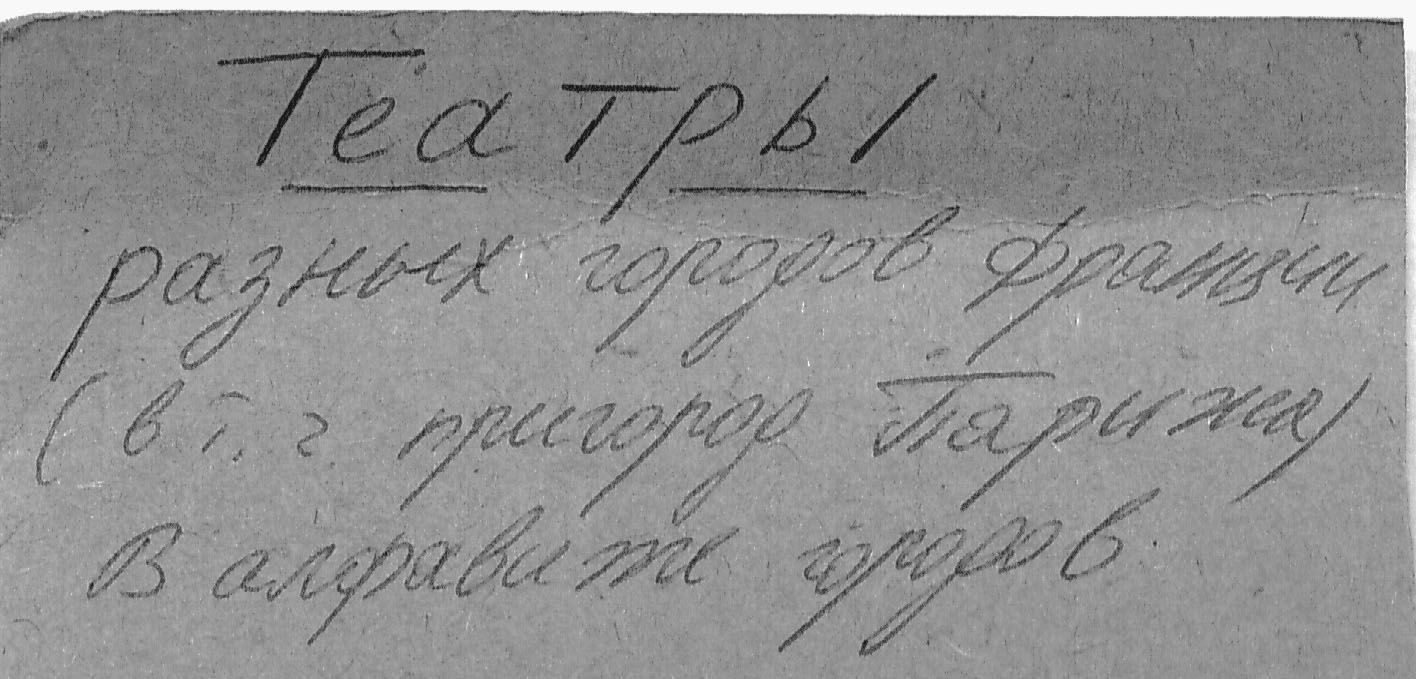 Театры
разных городов Франции
(в т. ч. пригород Парижа)
В алфавите городов.